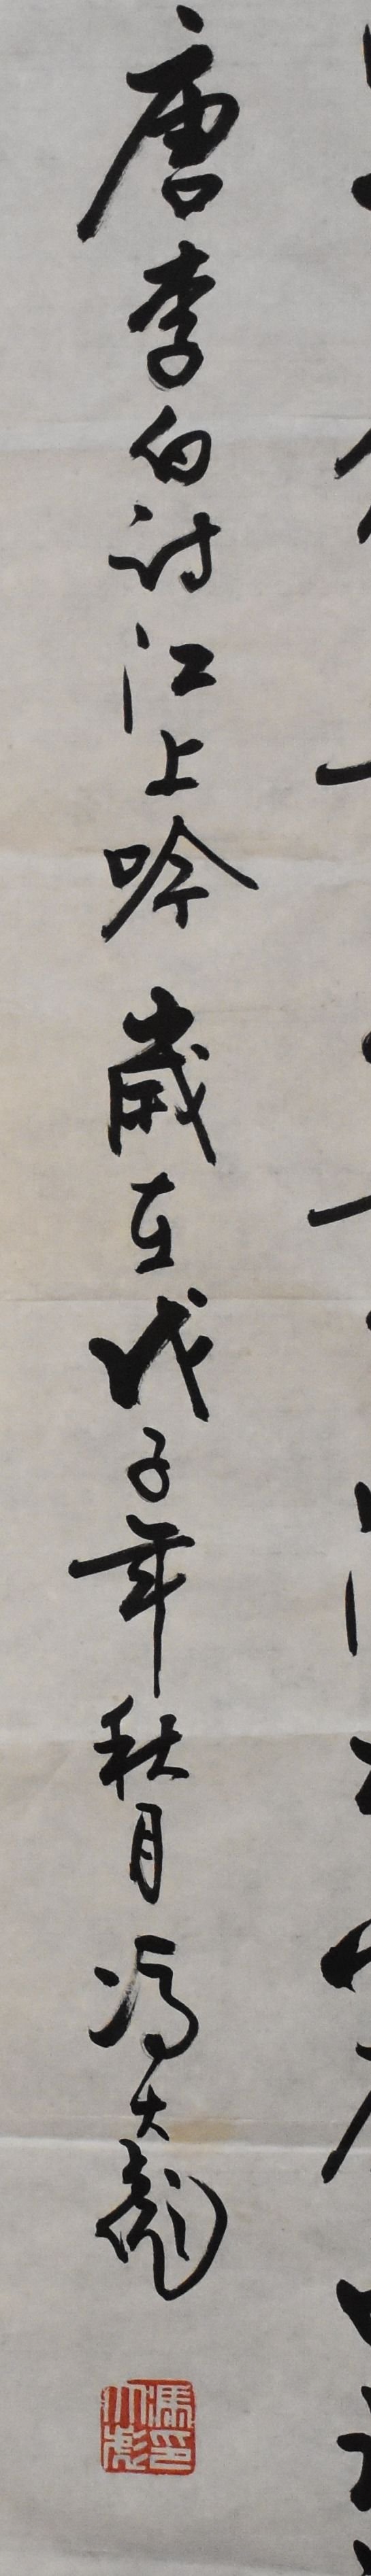 唐李白诗江上吟 歲在戊子年秋月 冯大彪
馮印大彪